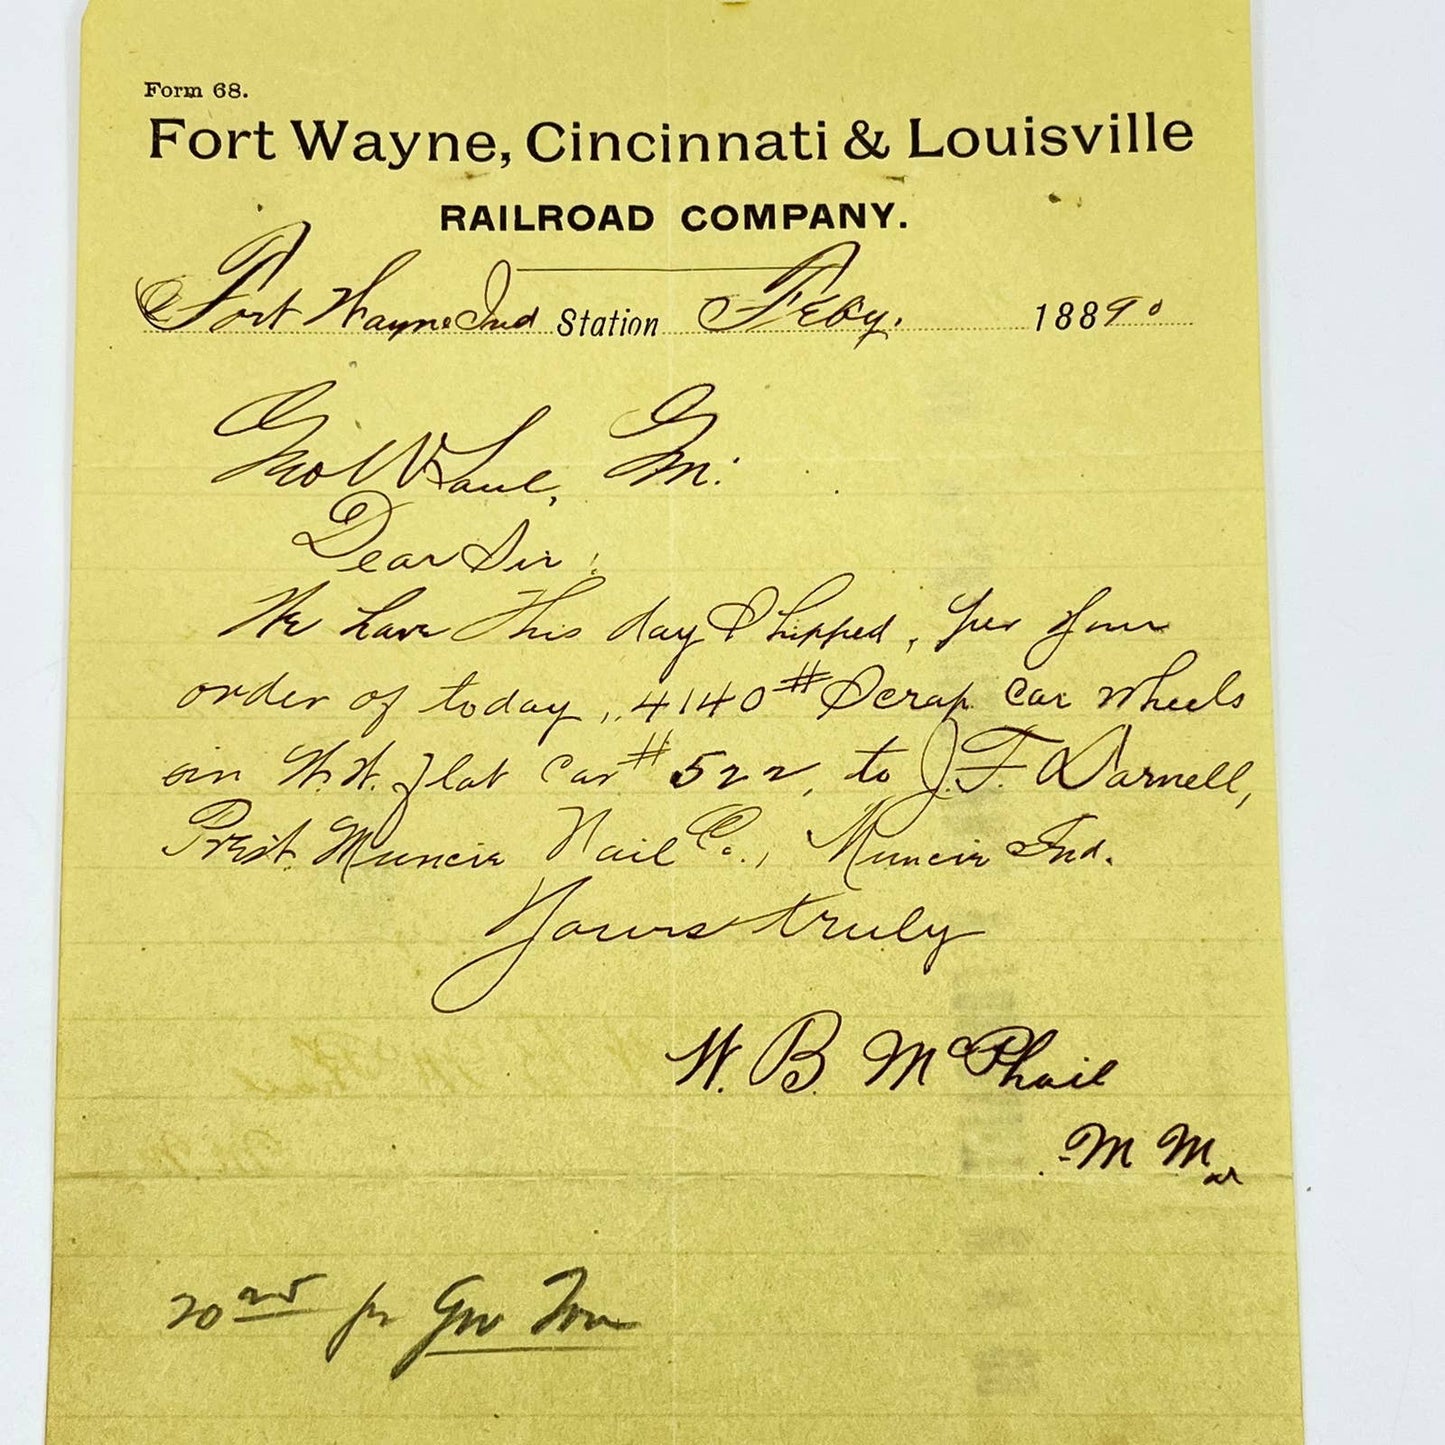 Form 68.
Fort Wayne, Cincinnati & Louisville
RAILROAD COMPANY.
Fort Wayne Ind Station Feby. 18890
Geo W Saul, GM:
Dear Sir:
We have this day Shipped, per your
order of today, 4140# Scrap Car Wheels
in W.W. flat Car # 522, to J.F. Darnell,
Prest. Muncie Nail Co., Muncie Ind.
Yours truly
W. B. McPhail
M M
20 25 pr Gro Ton